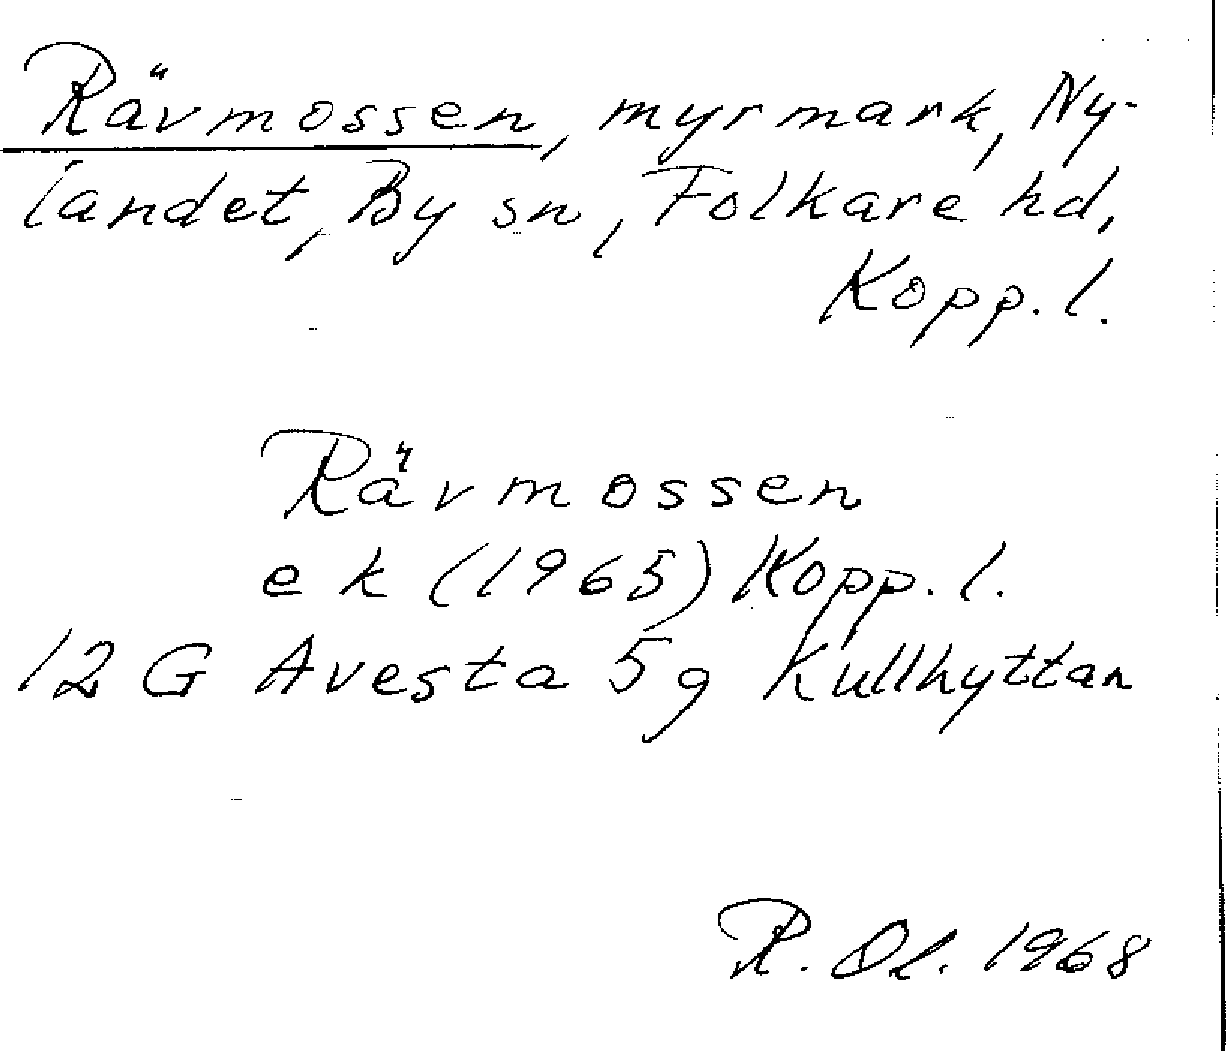 Rävmossen, myrmark, Ny-
landet, By sn, Folkare hd,
Kopp. l.
Rävmossen
e k (1965) Kopp. l.
12 G Avesta 5g Kullhyttan
R. Ol. 1968